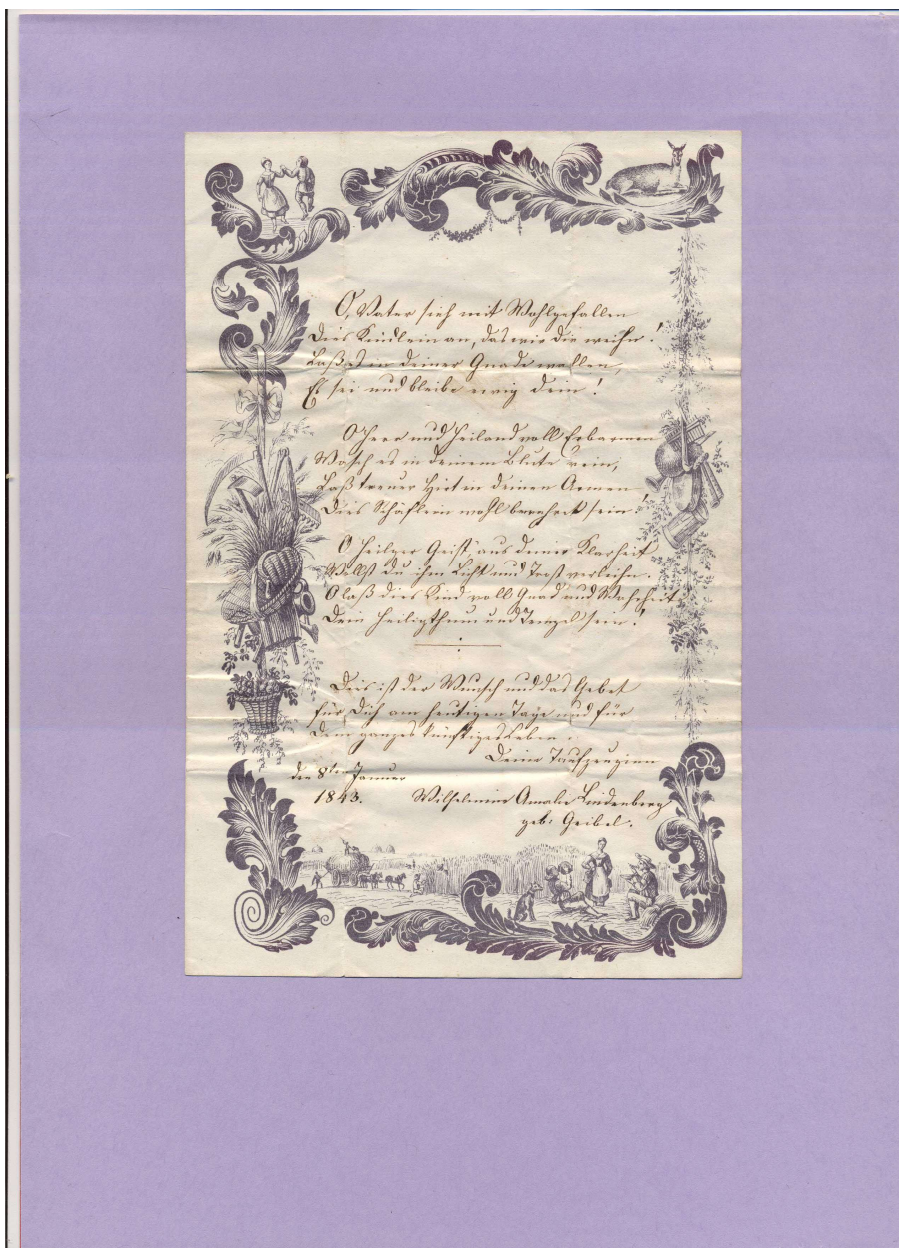 O, Vater sieh mit Wohlgefallen
Dies Kindlein an, das wir dir weihn!
Laß es in deiner Gnade wallen,
Es sei und bleibe ewig dein!
O Herr und Heiland voll Erbarmen
Wasch es in deinem Blute rein,
Laß treuer Hirt in deinen Armen
Dies Schäflein wohl bewahret sein!
O heilger Geist, aus deiner Klarheit
Wollst du ihm Licht und Trost verleihn.
O laß dies Kind voll Gnad und Wahrheit
Dein Heiligthum und Tempel sein!
Dies ist der Wunsch und das Gebet
für Dich am heutigen Tage und für
Dein ganzes künftiges Leben.
Deine Taufzeuginn
den 8ten Januar
1843. Wilhelmine Amalie Lindenberg
geb: Geibel.